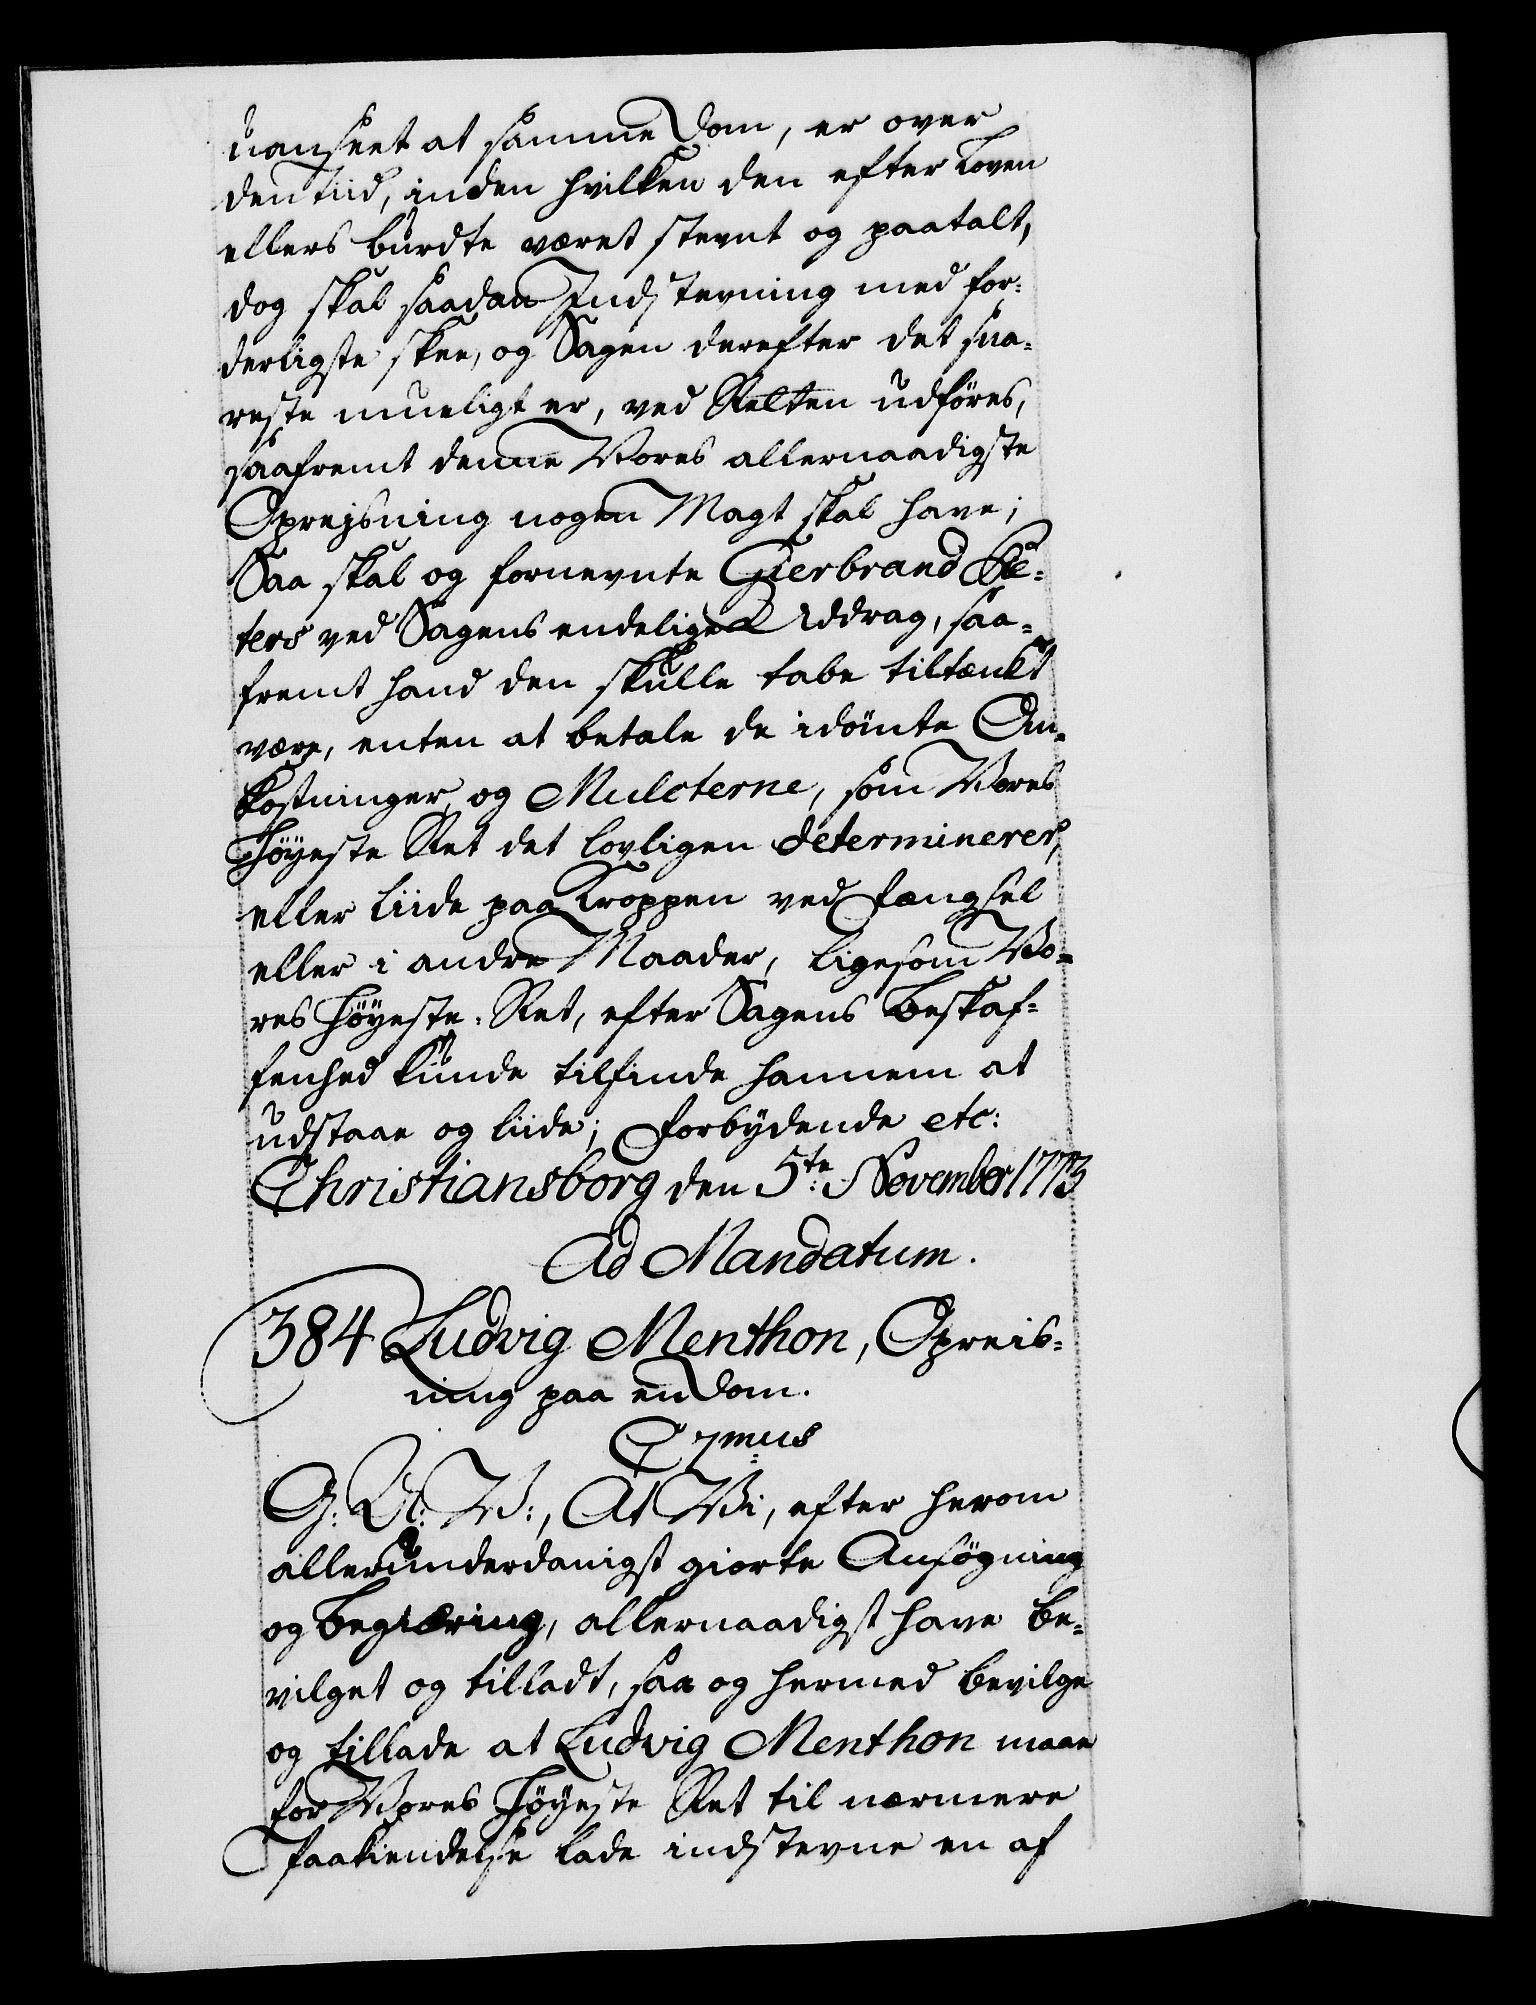 uanseet at samme Dom, er over
den Tiid, inden hvilken den efter Loven
ellers burdte været stevnt og paatalt,
dog skal saadan Indstevning med for-
derligste skee, og Sagen derefter det sna-
reste mueligt er, ved Retten udføres,
saafremt denne Vores allernaadigste
Oprejsning nogen Magt skal have;
Saa skal og fornevnte Gierbrand Pe-
ters ved Sagens endelige Uddrag, saa-
fremt hand den skulle tabe tiltænkt
være, enten at betale de idømte Om-
kostninger og Mulcterne, som Vores
Høyeste Ret det lovligen determinerer,
eller liide paa Kroppen ved Fængsel
eller i andre Maader, ligesom Vo-
res Høyeste-Ret, efter Sagens Beskaf-
fenhed kunde tilfinde hannem at
udstaae og liide; Forbydende etc:
Christiansborg den 5te November 1773
Ad Mandatum.
384 Ludvig Menthon, Opreis-
ning paa en Dom.
C 7mus
G: A: V:, At Vi, efter herom
allerunderdanigst giorte Ansøgning
og Begiæring, allernaadigst have be-
vilget og tilladt, saa og hermed bevilge
og tillade at Ludvig Menthon maae
for Vores Høyeste Ret til nærmere
Paakiendelse lade indstevne en af